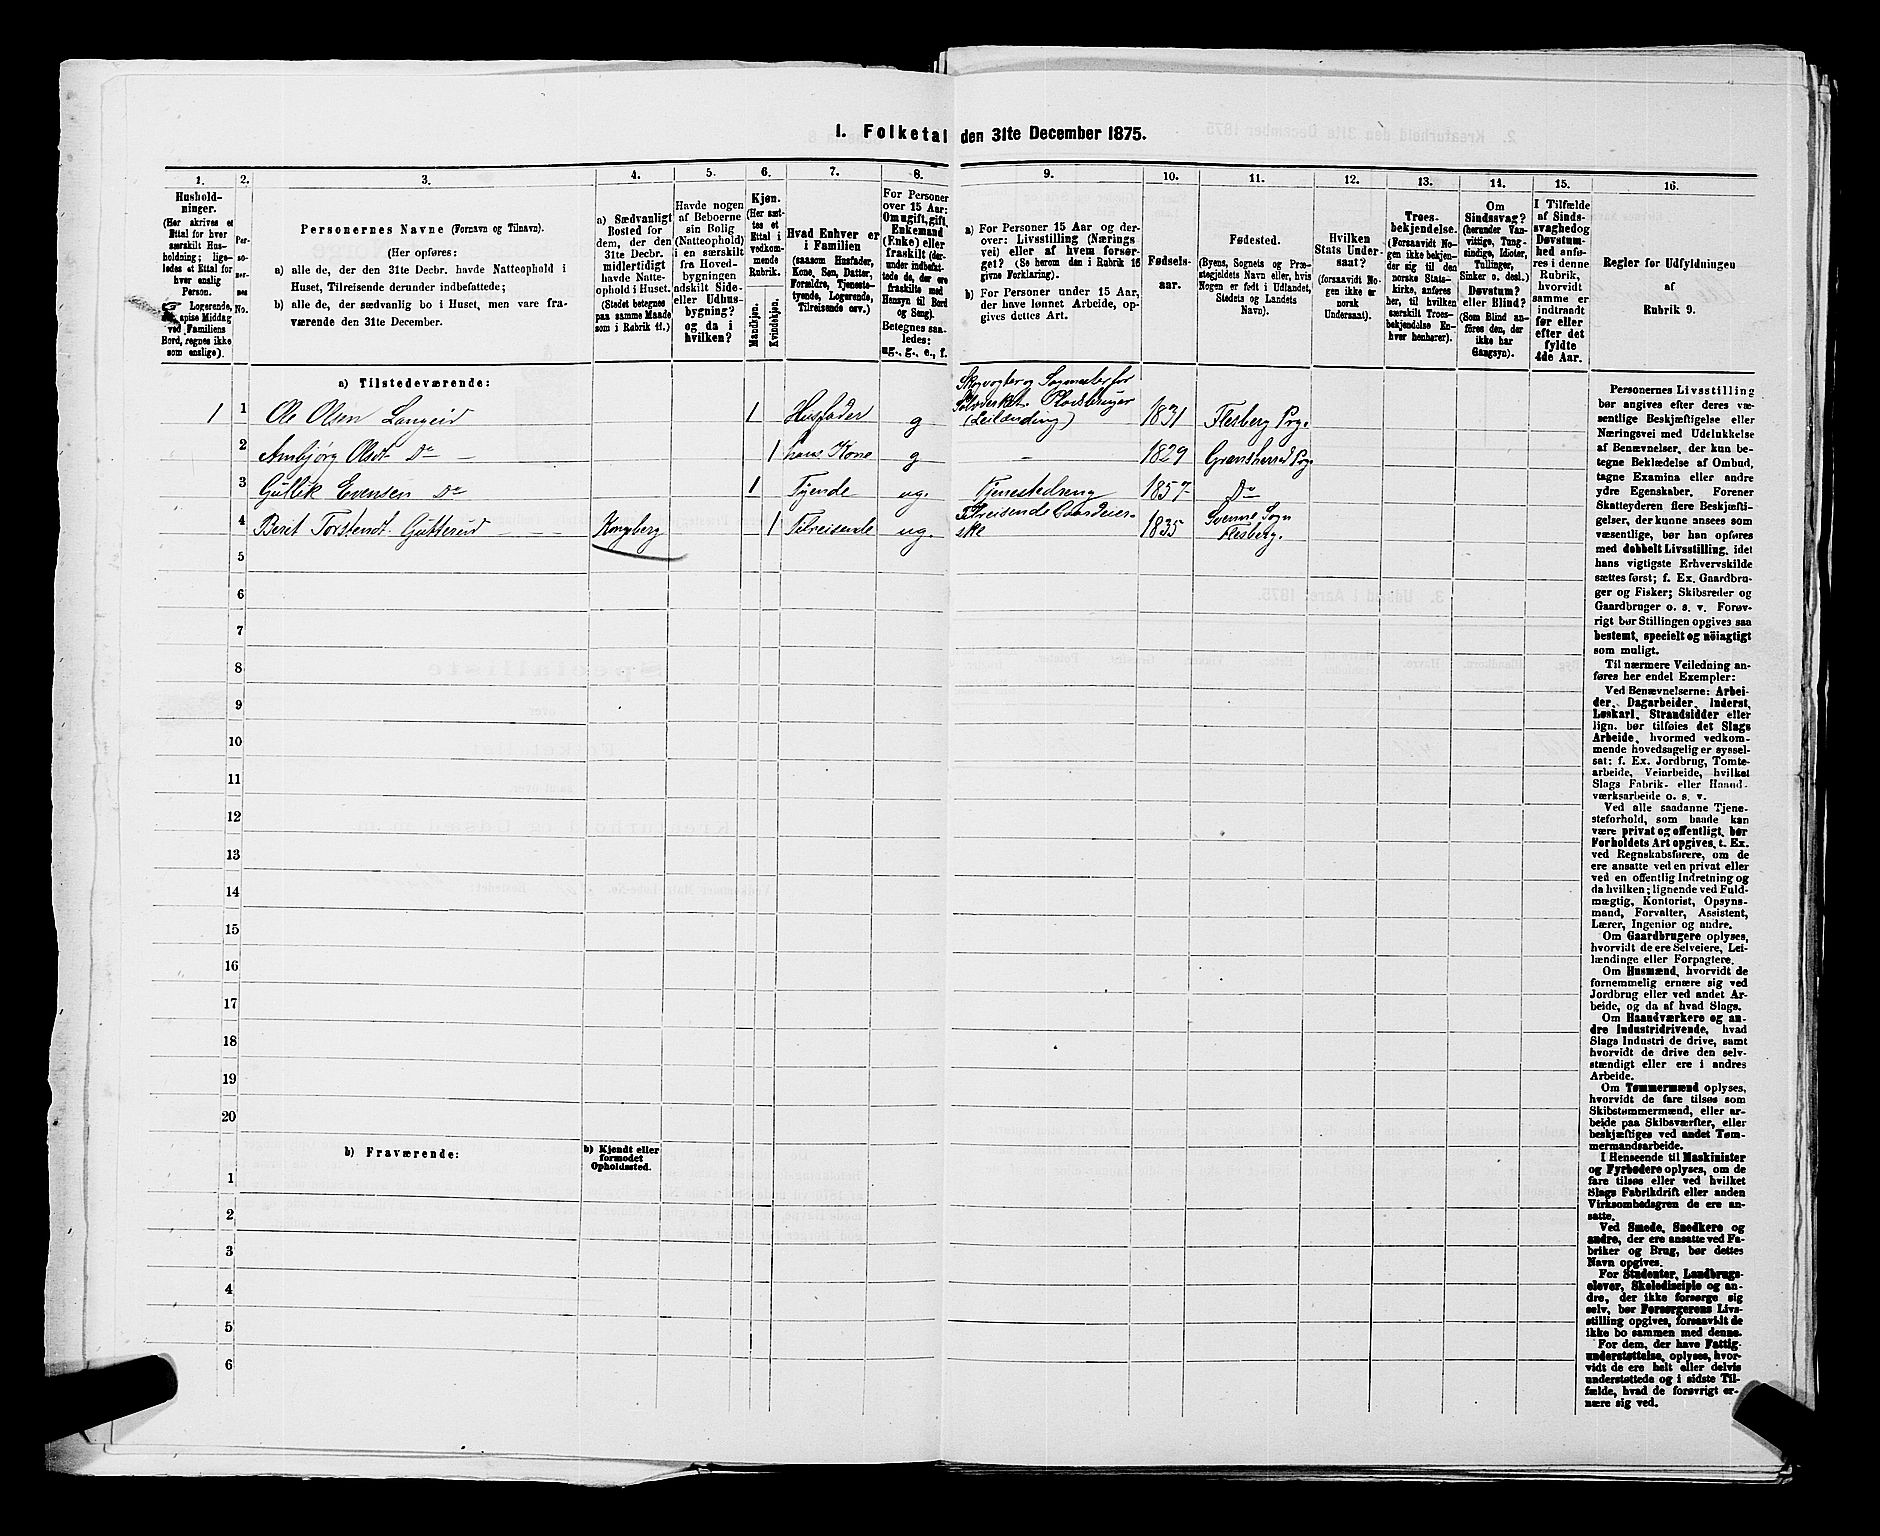 1. Folketal den 31te December 1875.
1.
Hushold-
ninger.
(Her skrives et
Ettal for hver
særskilt Hus-
holdning; lige-
ledes et Ettal for
hver enslig
Person.
Logerende,
spise Middag
ved Familiens
Bord, regnes ikke
som enslige).
2.
Per-
so-
ner-
nes
No.
3.
Personernes Navne (Fornavn og Tilnavn).
(Her opføres:
a) alle de, der den 31te Decbr. havde Natteophold i
Huset, Tilreisende derunder indbefattede;
b) alle de, der sædvanlig bo i Huset, men vare fra-
værende den 31te December.
4.
a) Sædvanligt
Bosted for
dem, der den
31te Decbr.
midlertidigt
havde Natte-
ophold i Huset.
(Stedet betegnes
paa samme Maade
som i Rubrik 11.)
5.
Havde nogen
af Beboerne
sin Bolig
(Natteophold)
i en særskilt
fra Hoved-
bygningen
adskilt Side-
eller Udhus-
bygning?
og da i
hvilken?
6.
Kjøn.
(Her sæt-
tes et
Ettal i
vedkom-
mende
Rubrik.
Mandkjøn.
Kvindekjøn.
7.
Hvad Enhver er
i Familien
(saasom Husfader,
Kone, Søn, Datter,
Forældre, Tjeneste-
tyende, Logerende,
Tilreisende osv.)
8.
For Personer
over 15 Aar:
Om ugift, gift,
Enkemand
(Enke) eller
fraskilt (der-
under indbefat-
tede de, der ere
fraskilte med
Hensyn til Bord
og Seng).
Betegnes saa-
ledes:
ug., g., e., f.
9.
a) For Personer 15 Aar og der-
over: Livsstilling (Nærings
vei) eller af hvem forsør-
get? (Se herom den i Rubrik 16
givne Forklaring).
b) For Personer under 15 Aar,
der have lønnet Arbeide, op-
gives dettes Art.
10.
Fødsels-
aar.
11.
Fødested.
(Byens, Sognets og Præ-
stegjeldets Navn eller, hvis
Nogen er født i Udlandet,
Stedets og Landets
Navn).
12.
Hvilken
Stats Under-
saat?
(forsaavidt No-
gen ikke er
norsk
Undersaat).
13.
Troes-
bekjendelse.
(Forsaavidt No-
gen ikke bekjen-
der sig til den
norske Stats-
kirke, anføres
her, til hvilken
særskilt Troes-
bekjendelse En-
hver henhører).
14.
Om
Sindssvag?
(herunder Van-
vittige, Tung-
sindige, Idioter,
Tullinger,
Sinker o. desl.)
Døvstum?
eller Blind?
(Som Blind an-
føres den, der
ikke har
Gangsyn).
15.
I Tilfælde
af Sinds-
svaghed og
Døvstum-
hed anfø-
res i denne
Rubrik,
hvorvidt
samme er
indtraadt
før eller
efter det
fyldte
4de Aar.
16.
Regler for Udfyldningen
af
Rubrik 9.
a) Tilstedeværende:
1 1 Ole Olsen Langeid 1 Husfader g Skogvogter og Sagmester for
Sølvverket. Pladsbruger
(Leilænding) 1831 Flesberg Prg.
2 Ambjørg Olsdt. Do 1 hans Kone g - 1829 Gransherred Prg.
3 Gullik Evensen Do 1 Tyende ug. Tjenestedreng 1857 Do
4 Berit Torstensdt. Gutterud Kongsberg 1 Tilreisende ug. Tilreisende Gaardeier-
ske 1835 Svenne Sogn
Flesberg.
5
6
7
8
9
10
11
12
13
14
15
16
17
18
19
20
b) Fraværende:
b) Kjendt eller
formodet
Opholdssted.
1
2
3
4
5
6
Personernes Livsstilling
bør angives efter deres væ-
sentlige Beskjæftigelse eller
Næringsvei med Udelukkelse
af Benævnelser, der kun be-
tegne Beklædelse af Ombud,
tagne Examina eller andre
ydre Egenskaber. Forener
Skatteyderen flere Beskjæfti-
gelser, der kunne ansees som
væsentlige, bør han opføres
med dobbelt Livsstilling, idet
hans vigtigste Erhvervskilde
sættes først; f. Ex. Gaardbru-
ger og Fisker; Skibsreder og
Gaardbruger o. s. v. Forøv-
rigt bør Stillingen opgives saa
bestemt, specielt og nöiagtigt
som muligt.
Til nærmere Veiledning an-
føres her endel Exempler:
Ved Benævnelserne: Arbei-
der, Dagarbeider, Inderst,
Løskarl, Strandsidder eller
lign. bør tilføies det Slags
Arbeide, hvormed vedkom-
mende hovedsagelig er syssel-
sat; f. Ex. Jordbrug, Tomte-
arbeide, Veiarbeide, hvilket
Slags Fabrik- eller Haand-
værksarbeide o. s. v.
Ved alle saadanne Tjene-
steforhold, som baade kan
være privat og offentligt, bør
Forholdets Art opgives, t. Ex.
ved Regnskabsførere, om de
ere ansatte ved en privat eller
ved en offentlig Indretning og
da hvilken; lignende ved Fuld-
mægtig, Kontorist, Opsyns-
mand, Forvalter, Assistent,
Lærer, Ingeniør og andre.
Om Gaardbrugere oplyses,
hvorvidt de ere Selveiere, Lei-
lændinge eller Forpagtere.
Om Husmænd, hvorvidt de
fornemmelig ernære sig ved
Jordbrug eller ved andet Ar-
beide, og da af hvad Slags.
Om Haandværkere og an-
dre Industridrivende, hvad
Slags Industri de drive, samt
hvorvidt de drive den selv-
stændigt eller ere i andres
Arbeide.
Om Tømmermænd oplyses,
hvorvidt de fare tilsøs som
Skibstømmermænd, eller ar-
beide paa Skibsværfter, eller
beskjæftiges ved andet Tøm-
mermandsarbeide.
I Henseende til Maskinister
og Fyrbødere oplyses, om de
fare tilsøs eller ved hvilket
Slags Fabrikdrift eller anden
Virksomhedsgren de ere an-
satte.
Ved Smede, Snedkere og
andre, der ere ansatte ved Fa-
briker og Brug, bør dettes
Navn opgives.
For Studenter, Landbrugs-
elever, Skoledisciple og an-
dre, der ikke forsørge sig
selv, bør Forsørgerens Livs-
stilling opgives, forsaavidt de
ikke bo sammen med denne.
For dem, der have Fattig-
understøttelse, oplyses, hvor-
vidt de ere helt eller delvis
understøttede og i sidste Til-
fælde, hvad de forøvrigt er-
nære sig ved.